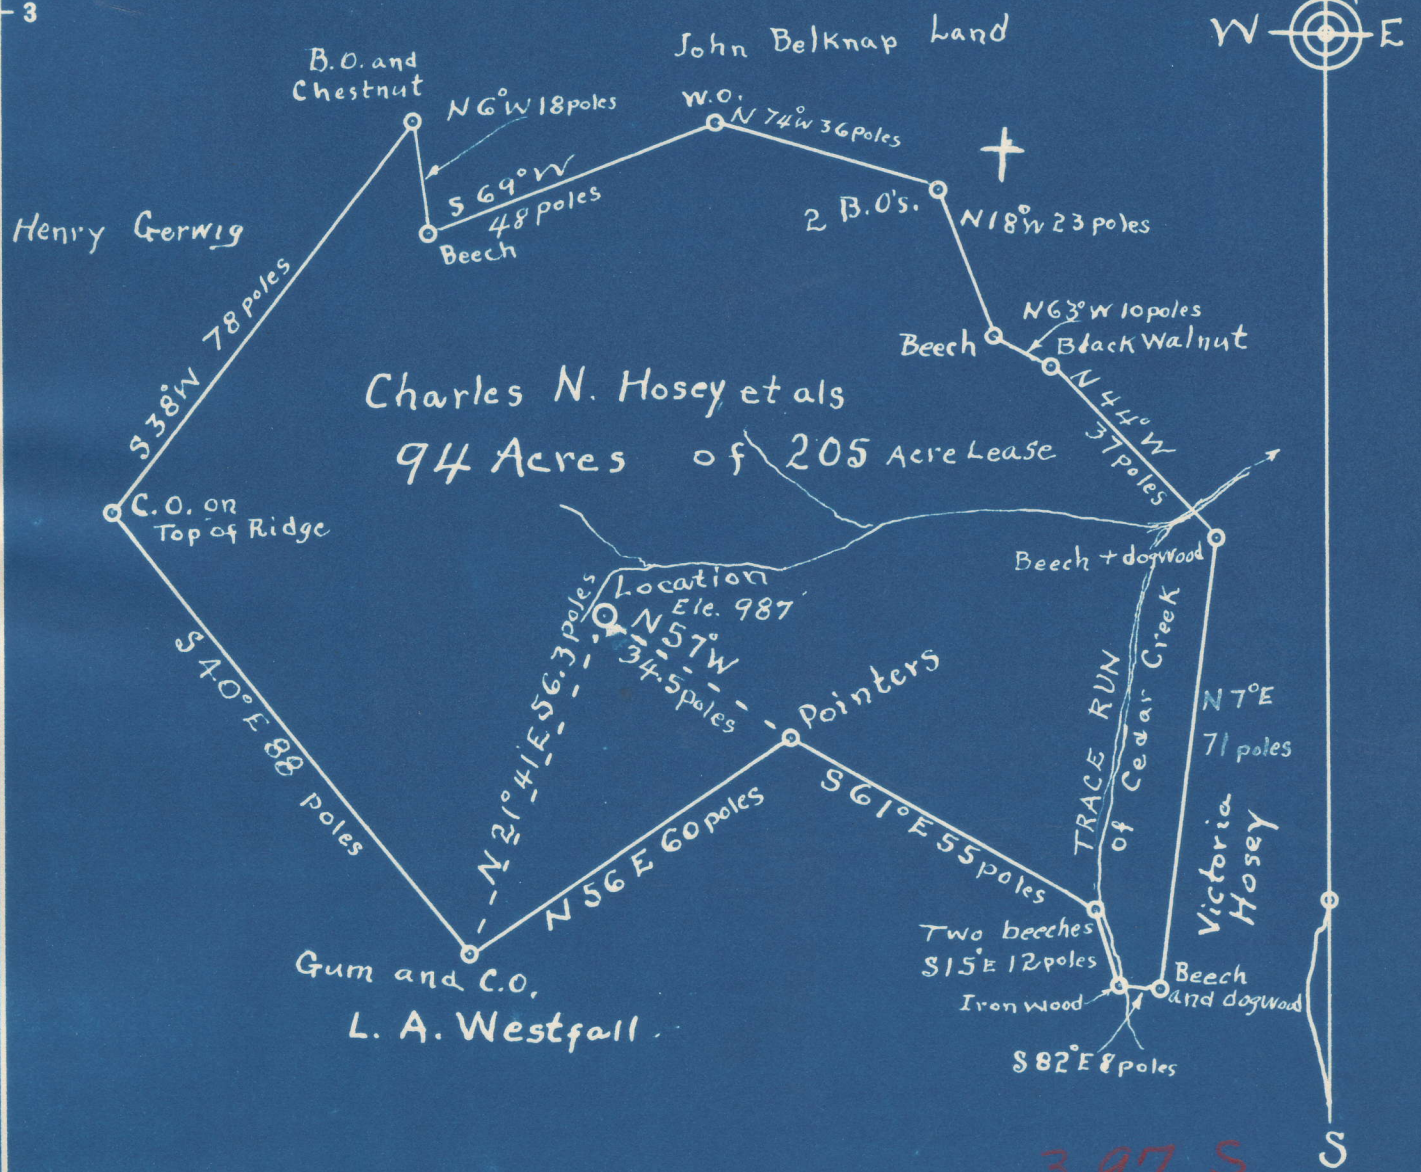 3
W E
John Belknap Land
B.O. and
Chestnut
N 6° W 18 poles
W.O.
N 74° W 36 poles
S 69° W
48 poles
Beech
2 B.O's.
N 18° W 23 poles
Henry Gerwig
S 38° W 78 poles
N 63° W 10 poles
Beech
Black Walnut
Charles N. Hosey et als
94 Acres of 205 Acre Lease
N 44° W
37 poles
C.O. on
Top of Ridge
Beech + dogwood
Location
Ele. 987
N 57° W
34.5 poles
N 21° 41 E 56.3 poles
Pointers
S 40° E 88 poles
N 56 E 60 poles
S 61° E 55 poles
TRACE RUN
of Cedar Creek
N 7° E
71 poles
Victoria
Hosey
Two beeches
S 15° E 12 poles
Iron wood
Beech
and dogwood
S 82° E 8 poles
Gum and C.O.
L. A. Westfall
S